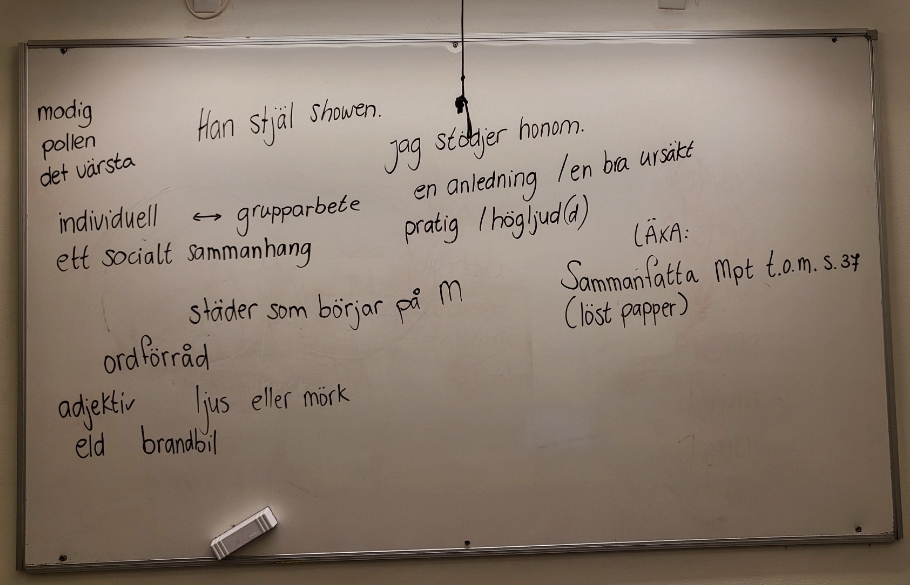 modig
pollen
det värsta
Han stjäl showen.
jag stödjer honom.
en anledning / en bra ursäkt
individuell ↔ grupparbete
pratig / högljud(d)
ett socialt sammanhang
LÄXA:
Sammanfatta Mpt t.o.m. s. 37
(löst papper)
städer som börjar på M
ordförråd
adjektiv ljus eller mörk
eld brandbil